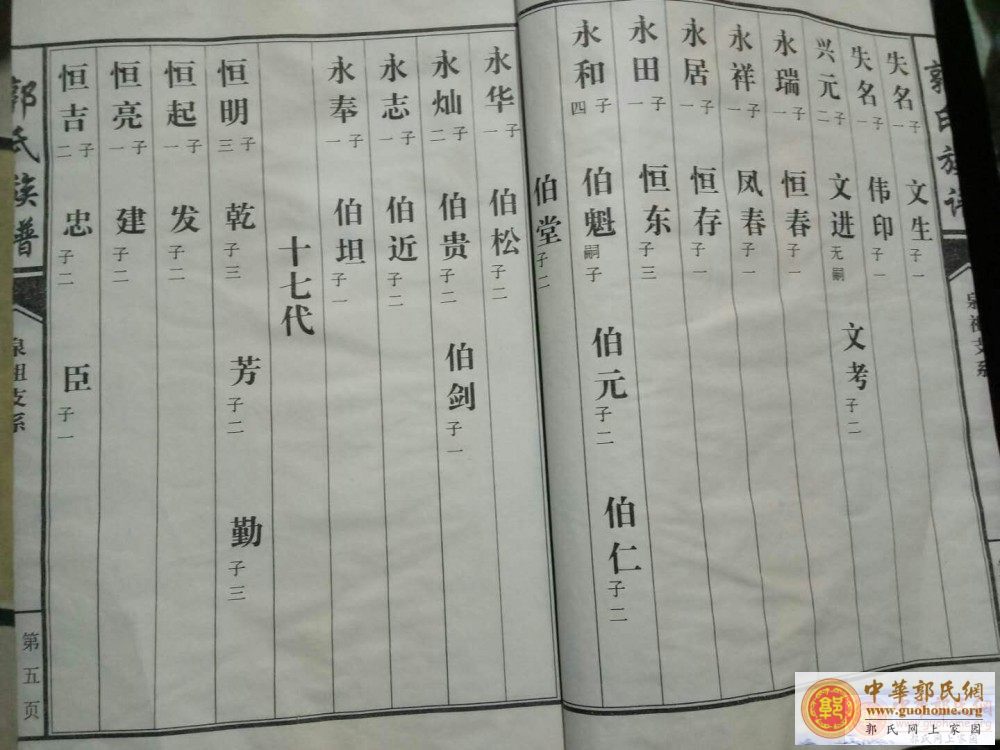 郭氏族谱
失名 子一 文生 子一
失名 子一 伟印 子一
兴元 子二 文进 无嗣 文考 子二
永瑞 子一 恒春 子一
永祥 子一 凤春 子一
永居 子一 恒存 子一
永田 子一 恒东 子三
永和 子四 伯魁 嗣子 伯元 子二 伯仁 子二
伯堂 子二
永华 子一 伯松 子二
永灿 子二 伯贵 子二 伯剑 子一
永志 子一 伯近 子二
永奉 子一 伯坦 子一
十七代
恒明 子三 乾 子三 芳 子二 勤 子三
恒起 子一 发 子二
恒亮 子一 建 子二
恒吉 子二 忠 子二 臣 子一
郭氏族谱
泉祖支系
第五页
中華郭氏網
www.guohome.org
郭氏网上家园